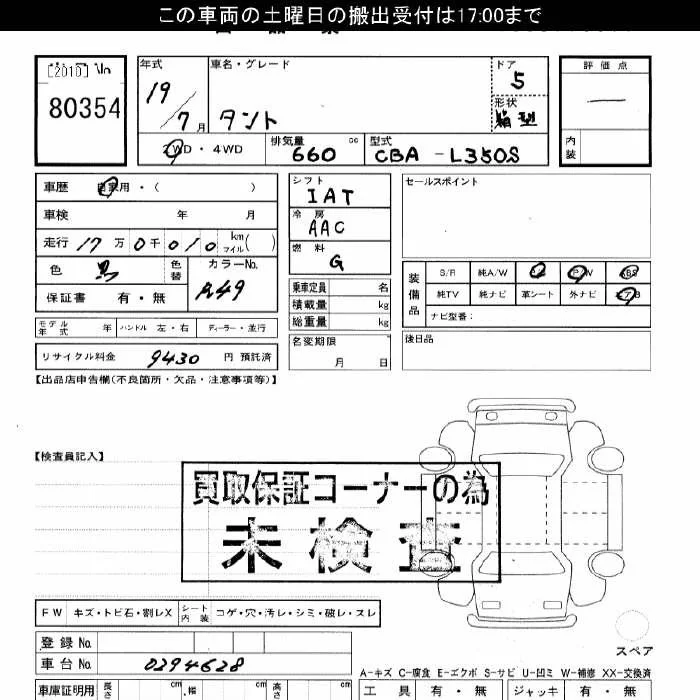 この車両の土曜日の搬出受付は17:00まで
[2010] No
80354
年式 19/7月
車名・グレード タント
ドア 5
形状 箱型
評価点 —
内装
2WD・4WD
排気量 660 cc
型式 CBA-L350S
車歴 自家用・( )
車検 年 月
走行 17万0千010 km マイル( )
色 黒 色替 カラーNo. A49
保証書 有・無
シフト IAT
冷房 AAC
燃料 G
乗車定員 名
積載量 kg
総重量 kg
名変期限 月 日
セールスポイント
装備品 S/R 純A/W P/S P/W ABS
純TV 純ナビ 革シート 外ナビ エアB
ナビ型番:
後日品
モデル年式 年 ハンドル 左・右 ディーラー・並行
リサイクル料金 9430 円 預託済
【出品店申告欄(不良箇所・欠品・注意事項等)】
【検査員記入】
買取保証コーナーの為
未検査
FW キズ・トビ石・割レX シート内装 コゲ・穴・汚レ・シミ・破レ・スレ
登録No.
車台No. 0294628
スペア
A-キズ C-腐食 E-エクボ S-サビ U-凹ミ W-補修 XX-交換済
車庫証明用 長さ cm 幅 cm 高さ cm
工具 有・無 ジャッキ 有・無